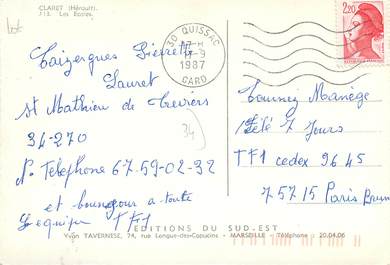 CLARET (Hérault)
J 13. Les Rostes.
30 QUISSAC
-9
1987
GARD
2,20
Taizergues Pierrette
Lauret
st Mathieu de Treviers
34-270
N° Téléphone 67-59-02-32
et bounjour a toute
l'equipe TF1
34
Tournez Manège
Télé 7 Jours
TF1 cedex 9645
75715 Paris Brune
EDITIONS DU SUD-EST
Yvon TAVERNESE, 74, rue Longue-des-Capucins - MARSEILLE - Téléphone : 20.04.06